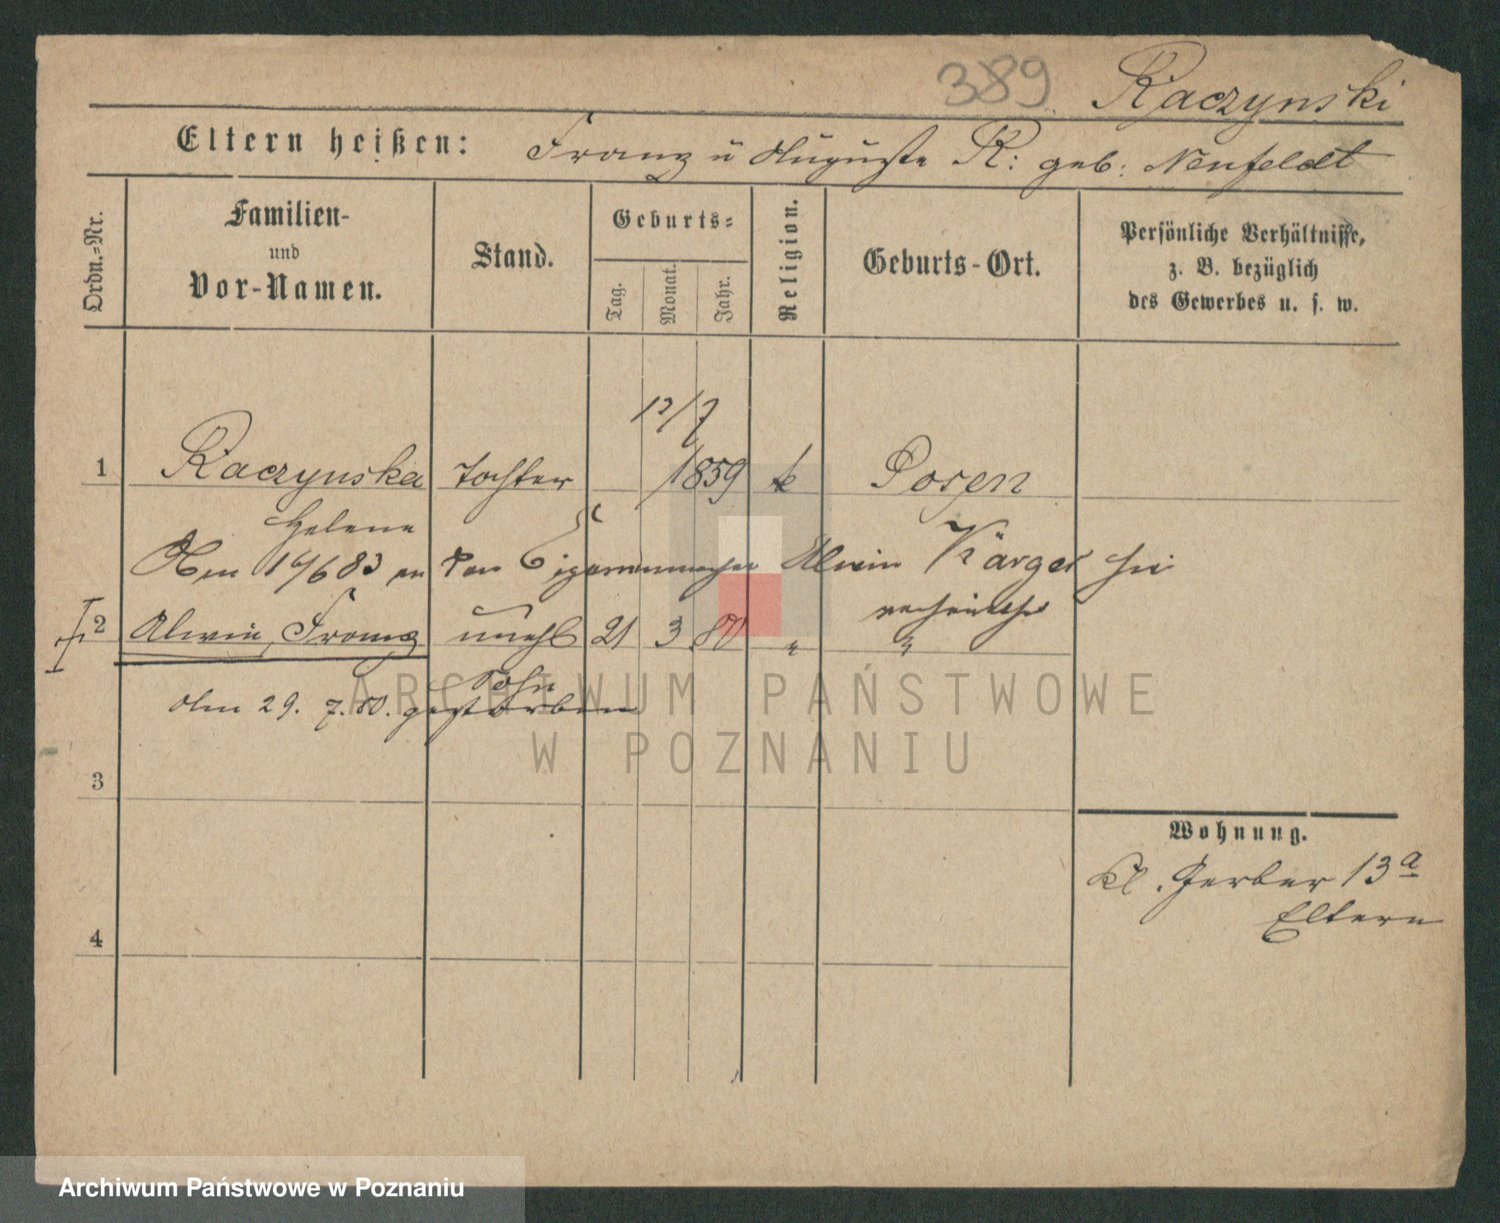 389 Raczynski
Eltern heißen: Franz u Auguste R: geb: Neufeldt
Ordn.-Nr.
Familien-
und
Vor-Namen.
Stand.
Geburts-
Tag.
Monat.
Jahr.
Religion.
Geburts-Ort.
Persönliche Verhältnisse,
z. B. bezüglich
des Gewerbes u. s. w.
12/7
1 Raczynska Tochter 1859 k Posen
Helene
Am 14/6 83 an den Cigarrenmacher Alwin Karger hier
verheirathet
2 Alwin, Franz unehl 21 3 80 " "
Sohn
Am 29. 7. 80. gestorben
3
4
Wohnung.
Kl. Gerber 13a
Eltern
ARCHIWUM PAŃSTWOWE
W POZNANIU
Archiwum Państwowe w Poznaniu